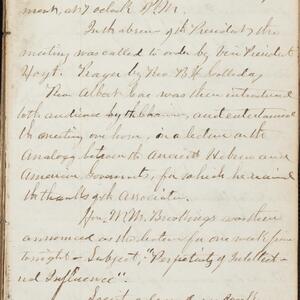 ment, at 7 o'clock P.M.
In the absence of the President, the
meeting was called to order by Vice President
Hoyt. Prayer by Rev. B. F.
Rev. Albert was then introduced
to the audience by the and entertained
the meeting one hour, in a lecture on the
Analogy between the Ancient Hebrew and
American Governments, for which he received
the thanks of the Association.
Hon. W. W. Brookings was then
announced as the lecturer for one week from
tonight – Subject, "Perpetuity of Intellect-
ual Influence".